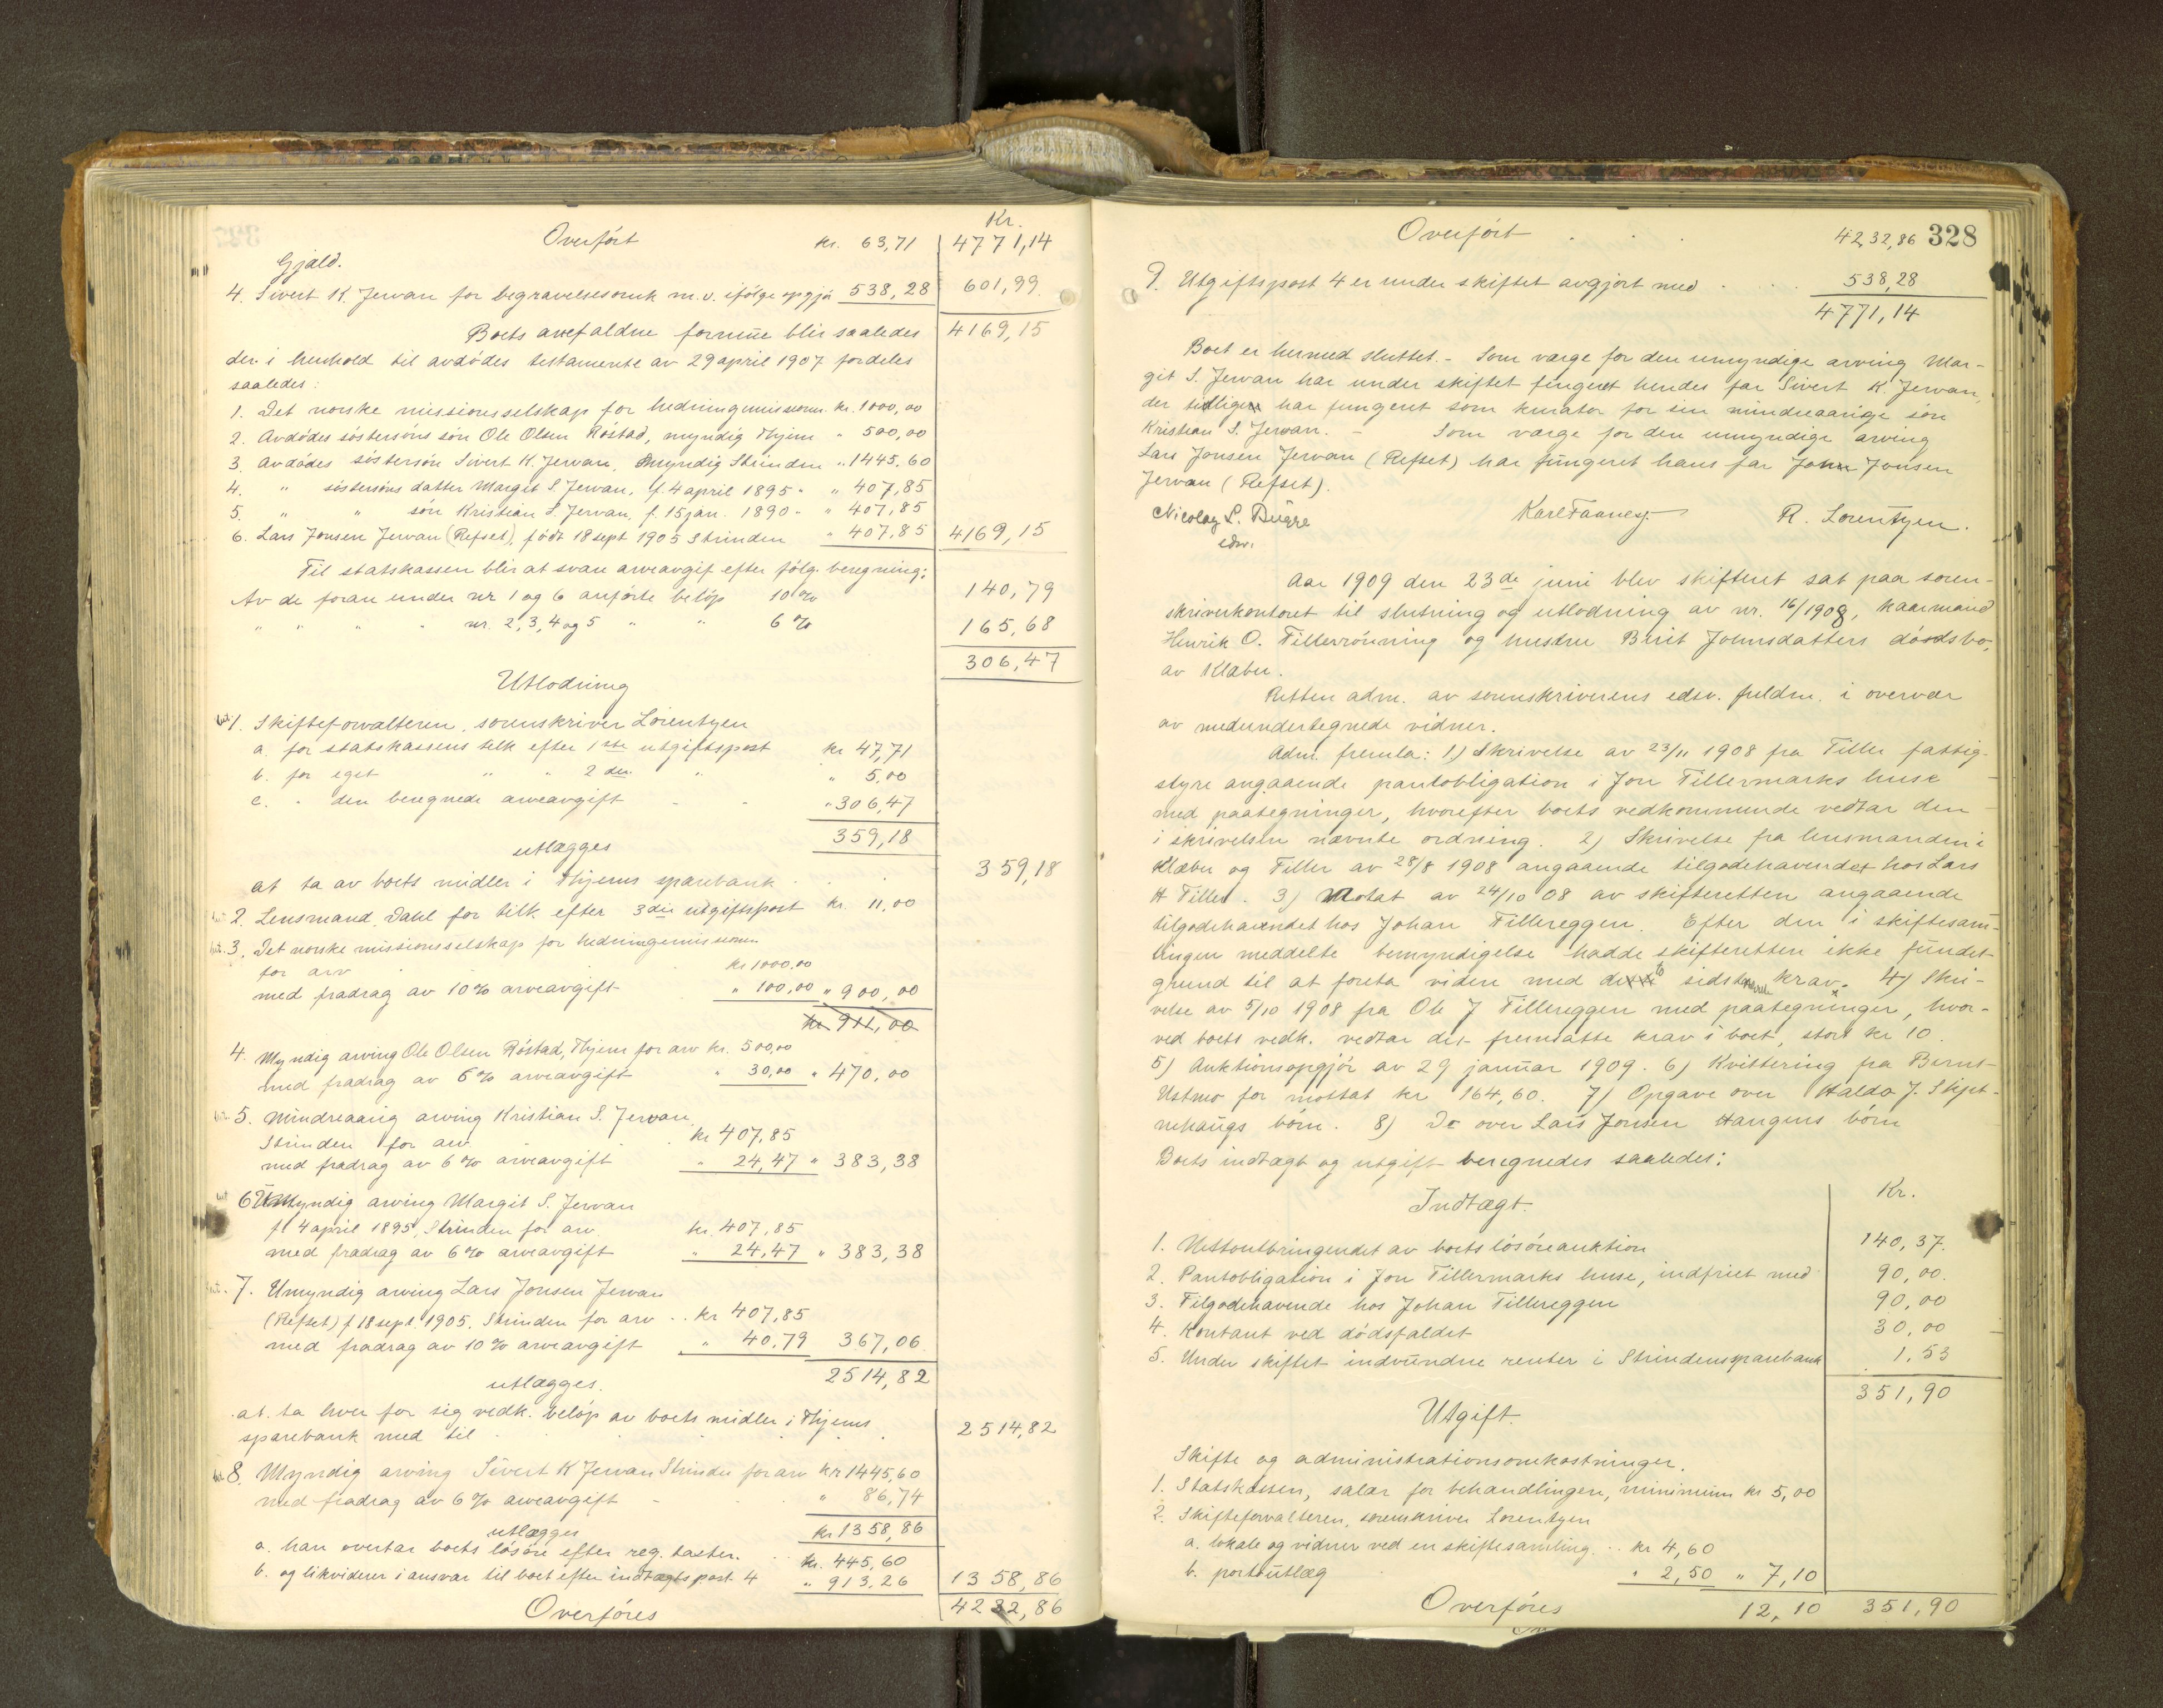 Kr.
Overført kr. 63,71 4771,14
Gjæld.
4. Sivert K. Jervan for begravelsesomk m.v. ifølge opgjø 538,28 601,99
Boets formue blir saaledes 4169,15
der i henhold til avdødes testamente av 29 april 1907 fordeles
saaledes:
1. Det norske missionsselskap for hedningemissionen kr. 1000,00
2. Avdødes søstersøns søn Ole Olsen Røstad, myndig Thjem " 500,00
3. Avdødes søstersøn Sivert K. Jervan, myndig Strinden " 1445,60
4. " søstersøns datter Margit S. Jervan, f. 4 april 1895 - " 407,85
5. " " søn Kristian S. Jervan, f. 15 jan. 1890 - " 407,85
6. Lars Jonsen Jervan (Refset), født 18 sept 1905 Strinden " 407,85 4169,15
Til statskassen blir at svare arveavgif efter følg. beregning:
Av de foran under nr 1 og 6 anførte beløp 10% 140,79
" " " " nr. 2, 3, 4 og 5 " " 6% 165,68
306,47
Utlodning
1. Skifteforvalteren, sorenskriver Lorentzen
a. for statskassens tilk efter 1ste utgiftspost kr 47,71
b. for eget " " 2den " " 5,00
c. " den beregnede arveavgift - - " 306,47
utlægges 359,18
at ta av boets midler i Thjems sparebank 359,18
2. Lensmand Dahl for tilk. efter 3die utgiftspost kr. 11,00
3. Det norske missionsselskap for hedningemissionen
for arv kr 1000,00
med fradrag av 10% arveavgift " 100,00 " 900,00
kr 911,00
4. Myndig arving Ole Olsen Røstad, Thjem for arv kr. 500,00
med fradrag av 6% arveavgift " 30,00 " 470,00
5. Mindreaarig arving Kristian S. Jervan
Strinden for arv kr 407,85
med fradrag av 6% arveavgift " 24,47 " 383,38
6. Umyndig arving Margit S. Jervan
f 4 april 1895, Strinden for arv kr. 407,85
med fradrag av 6% arveavgift " 24,47 " 383,38
7. Umyndig arving Lars Jonsen Jervan
(Refset) f 18 sept. 1905. Strinden for arv .. kr 407,85
med fradrag av 10% arveavgift " 40,79 367,06
utlægges. 2514,82
at ta hver for sig vedk. beløp av boets midler i Thjems
sparebank med til 2514,82
8. Myndig arving Sivert K Jervan Strinden for arv kr 1445,60
med fradrag av 6% arveavgift - " 86,74
utlægges kr 1358,86
a. han overtar boets løsøre efter reg. takster. kr. 445,60
b. og likviderer i ansvar til boet efter indtægtspost 4 " 913,26 1358,86
Overføres 4232,86
Overført . . . 4232,86 328
9. Utgiftspost 4 er under skiftet avgjort med . . . 538,28
4771,14
Boet er hermed sluttet. - Som værge for den umyndige arving Mar-
git S. Jervan har under skiftet fungeret hendes far Sivert K. Jervan,
der har fungeret som kurator for sin mindreaarige søn
Kristian S. Jervan. - Som værge for den umyndige arving
Lars Jonsen Jervan (Refset) har fungeret hans far John Jonsen
Jervan (Refset).
Nicolay S. Karl R. Lorentzen.
edsv.
Aar 1909 den 23de juni blev skifteret sat paa soren-
skriverkontoret til slutning og utlodning av nr. 16/1908, kaarmand
Henrik O. Tillerrønning og hustru Birit Johnsdatters dødsbo,
av Klæbu.
Retten adm. av sorenskriverens edsv. fuldm. i overvær
av medundertegnede vidner.
Adm. fremla: 1) Skrivelse av 23/11 1908 fra Tiller fattig-
styre angaaende pantobligation i Jon Tillermarks huse
med paategninger, hvorefter boets vedkommende vedtar den
i skrivelsen nævnte ordning. 2) Skrivelse fra lensmanden i
Klæbu og Tiller av 28/8 1908 angaaende tilgodehavendet hos Lars
H Tiller. 3) Notat av 24/10 08 av skifteretten angaaende
tilgodehavendet hos Johan Tillereggen. Efter den i skiftesam-
lingen meddelte bemyndigelse hadde skifteretten ikke fundet
grund til at foreta videre med krav. 4) Skri-
velse av 5/10 1908 fra Ole J Tillereggen med paategninger, hvor-
ved boets vedk. vedtar det fremsatte krav i boet, stort kr 10
5) Auktionsopgjør av 29 januar 1909. 6) Kvittering fra Bernt
Ustmo for mottat kr 164,60. 7) Opgave over Haldo J.
børn. 8) Do over Lars Jonsen Haugens børn
Boets indtægt og utgift beregnedes saaledes:
Indtægt. Kr.
1. Nettoutbringendet av boets løsøreauktion 140,37
2. Pantobligation i Jon Tillermarks huse, indfriet med 90,00
3. Tilgodehavende hos Johan Tillereggen 90,00
4. Kontant ved dødsfaldet 30,00
5. Under skiftet indvundne renter i Strindens sparebank 1,53
351,90
Utgift.
Skifte og administrationsomkostninger.
1. Statskassen, salær for behandlingen, minimum kr 5,00
2. Skifteforvalteren, sorenskriver Lorentzen
a. lokale og vidner ved en skiftesamling .. kr 4,60
b. portoutlæg " 2,50 " 7,10
Overføres 12,10 351,90